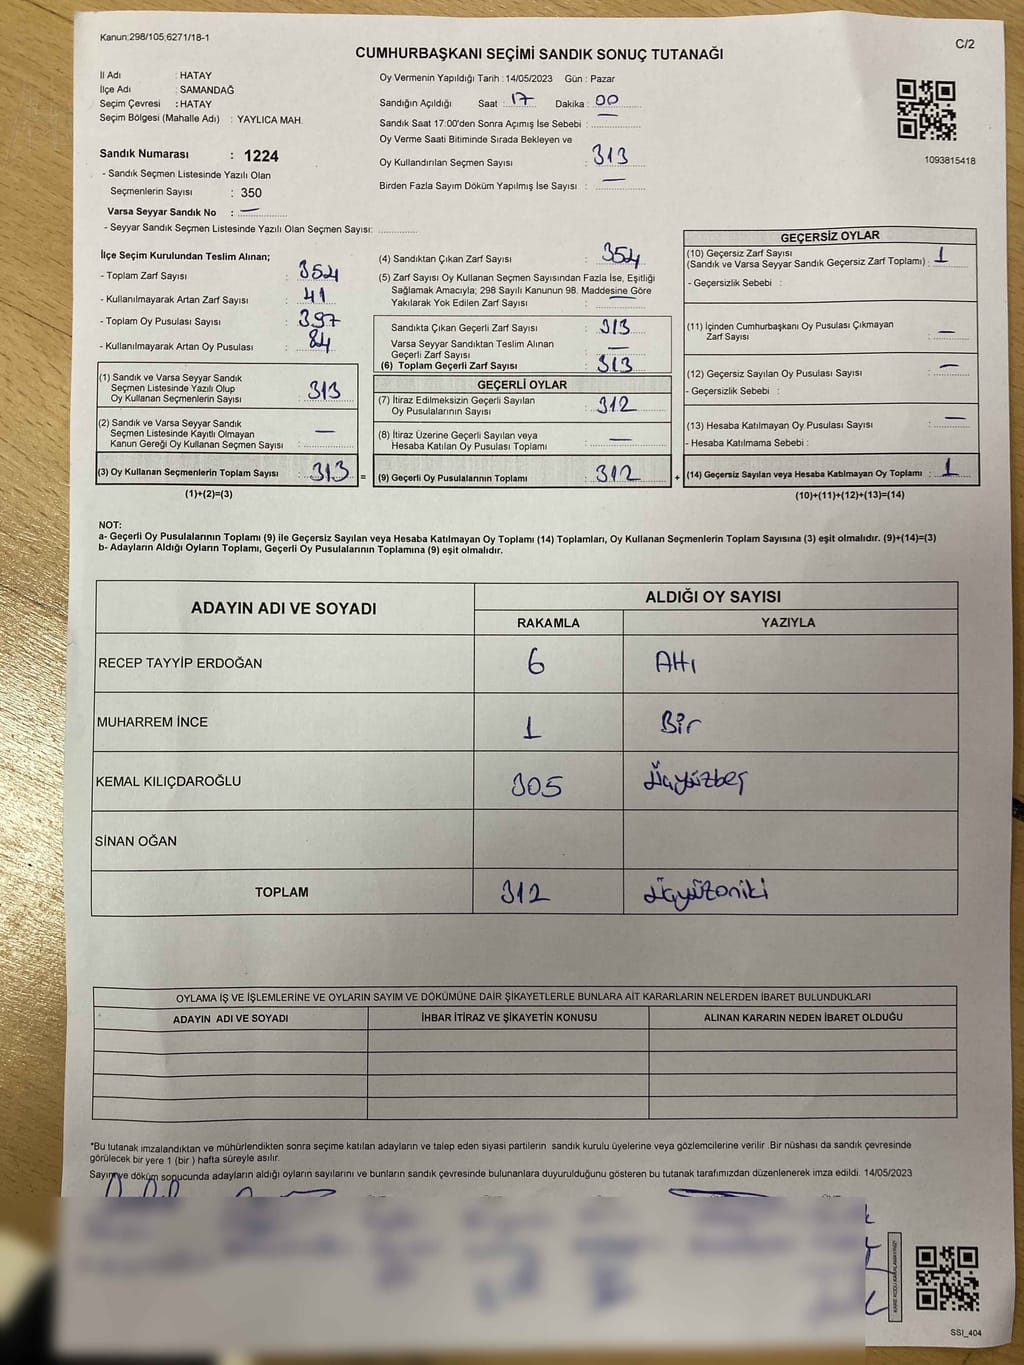 Kanun:298/105,6271/18-1
C/2
CUMHURBAŞKANI SEÇİMİ SANDIK SONUÇ TUTANAĞI
İl Adı : HATAY
İlçe Adı : SAMANDAĞ
Seçim Çevresi : HATAY
Seçim Bölgesi (Mahalle Adı) : YAYLICA MAH.
Sandık Numarası : 1224
- Sandık Seçmen Listesinde Yazılı Olan
Seçmenlerin Sayısı : 350
Varsa Seyyar Sandık No : —
- Seyyar Sandık Seçmen Listesinde Yazılı Olan Seçmen Sayısı:
Oy Vermenin Yapıldığı Tarih : 14/05/2023 Gün : Pazar
Sandığın Açıldığı Saat : 17 Dakika : 00
Sandık Saat 17:00'den Sonra Açımış İse Sebebi : —
Oy Verme Saati Bitiminde Sırada Bekleyen ve
Oy Kullandırılan Seçmen Sayısı : 313
Birden Fazla Sayım Döküm Yapılmış İse Sayısı : —
1093815418
İlçe Seçim Kurulundan Teslim Alınan;
- Toplam Zarf Sayısı : 354
- Kullanılmayarak Artan Zarf Sayısı : 41
- Toplam Oy Pusulası Sayısı : 397
- Kullanılmayarak Artan Oy Pusulası : 84
(1) Sandık ve Varsa Seyyar Sandık
Seçmen Listesinde Yazılı Olup
Oy Kullanan Seçmenlerin Sayısı : 313
(2) Sandık ve Varsa Seyyar Sandık
Seçmen Listesinde Kayıtlı Olmayan
Kanun Gereği Oy Kullanan Seçmen Sayısı : —
(3) Oy Kullanan Seçmenlerin Toplam Sayısı : 313 =
(1)+(2)=(3)
(4) Sandıktan Çıkan Zarf Sayısı : 354
(5) Zarf Sayısı Oy Kullanan Seçmen Sayısından Fazla İse, Eşitliği
Sağlamak Amacıyla; 298 Sayılı Kanunun 98. Maddesine Göre
Yakılarak Yok Edilen Zarf Sayısı : —
Sandıkta Çıkan Geçerli Zarf Sayısı : 313
Varsa Seyyar Sandıktan Teslim Alınan
Geçerli Zarf Sayısı : —
(6) Toplam Geçerli Zarf Sayısı : 313
GEÇERLİ OYLAR
(7) İtiraz Edilmeksizin Geçerli Sayılan
Oy Pusulalarının Sayısı : 312
(8) İtiraz Üzerine Geçerli Sayılan veya
Hesaba Katılan Oy Pusulası Toplamı : —
(9) Geçerli Oy Pusulalarının Toplamı : 312 +
GEÇERSİZ OYLAR
(10) Geçersiz Zarf Sayısı
(Sandık ve Varsa Seyyar Sandık Geçersiz Zarf Toplamı) : 1
- Geçersizlik Sebebi :
(11) İçinden Cumhurbaşkanı Oy Pusulası Çıkmayan
Zarf Sayısı : —
(12) Geçersiz Sayılan Oy Pusulası Sayısı : —
- Geçersizlik Sebebi :
(13) Hesaba Katılmayan Oy Pusulası Sayısı : —
- Hesaba Katılmama Sebebi :
(14) Geçersiz Sayılan veya Hesaba Katılmayan Oy Toplamı : 1
(10)+(11)+(12)+(13)=(14)
NOT:
a- Geçerli Oy Pusulalarının Toplamı (9) ile Geçersiz Sayılan veya Hesaba Katılmayan Oy Toplamı (14) Toplamları, Oy Kullanan Seçmenlerin Toplam Sayısına (3) eşit olmalıdır. (9)+(14)=(3)
b- Adayların Aldığı Oyların Toplamı, Geçerli Oy Pusulalarının Toplamına (9) eşit olmalıdır.
ADAYIN ADI VE SOYADI ALDIĞI OY SAYISI
RAKAMLA YAZIYLA
RECEP TAYYİP ERDOĞAN 6 Altı
MUHARREM İNCE 1 Bir
KEMAL KILIÇDAROĞLU 305 Üçyüzbeş
SİNAN OĞAN
TOPLAM 312 Üçyüzoniki
OYLAMA İŞ VE İŞLEMLERİNE VE OYLARIN SAYIM VE DÖKÜMÜNE DAİR ŞİKAYETLERLE BUNLARA AİT KARARLARIN NELERDEN İBARET BULUNDUKLARI
ADAYIN ADI VE SOYADI İHBAR İTİRAZ VE ŞİKAYETİN KONUSU ALINAN KARARIN NEDEN İBARET OLDUĞU
*Bu tutanak imzalandıktan ve mühürlendikten sonra seçime katılan adayların ve talep eden siyasi partilerin sandık kurulu üyelerine veya gözlemcilerine verilir .Bir nüshası da sandık çevresinde
görülecek bir yere 1 (bir ) hafta süreyle asılır.
Sayım ve döküm sonucunda adayların aldığı oyların sayılarını ve bunların sandık çevresinde bulunanlara duyurulduğunu gösteren bu tutanak tarafımızdan düzenlenerek imza edildi. 14/05/2023
SSI_404